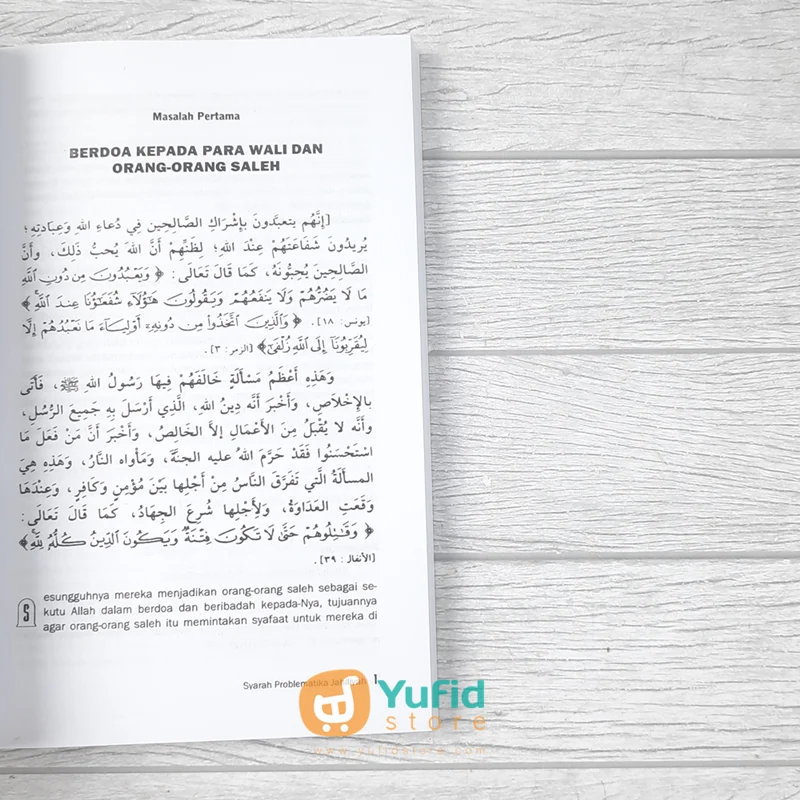 Masalah Pertama
BERDOA KEPADA PARA WALI DAN
ORANG-ORANG SALEH
[إِنَّهُم يتعبَّدونَ بِإشْرَاكِ الصَّالِحِين فِي دُعاءِ اللهِ وَعِبادتِهِ؛
يُرِيدُونَ شَفَاعَتَهُمْ عِنْدَ اللهِ؛ لِظَنِّهِمْ أَنَّ اللهَ يُحبُّ ذَلِكَ، وأَنَّ
الصَّالحِينَ يُحِبُّونَهُ، كَمَا قَالَ تَعَالَى: ﴿ وَيَعْبُدُونَ مِن دُونِ ٱللَّهِ
مَا لَا يَضُرُّهُمْ وَلَا يَنفَعُهُمْ وَيَقُولُونَ هَٰٓؤُلَآءِ شُفَعَٰٓؤُنَا عِندَ ٱللَّهِۚ ﴾
[يونس: ١٨]. ﴿ وَٱلَّذِينَ ٱتَّخَذُوا۟ مِن دُونِهِۦٓ أَوْلِيَآءَ مَا نَعْبُدُهُمْ إِلَّا
لِيُقَرِّبُونَآ إِلَى ٱللَّهِ زُلْفَىٰٓ﴾ [الزمر: ٣].
وَهَذِهِ أَعْظَمُ مَسْأَلَةٍ خَالَفَهُمْ فِيهَا رَسُولُ اللهِ ﷺ، فَأَتَى
بالإِخْلَاصِ، وَأَخْبَرَ أنَّه دِينُ اللهِ، الَّذِي أَرْسَلَ بِهِ جَمِيعَ الرُّسُلِ،
وأنَّه لا يُقْبَلُ مِنَ الأَعْمَالِ إلاَّ الخَالِصُ، وَأَخْبَرَ أَنَّ مَنْ فَعَلَ مَا
اسْتَحْسَنُوا فَقَدْ حَرَّمَ اللهُ عليه الجنَّةَ، وَمَأواه النَّارُ، وَهَذِهِ هِيَ
المسألَةُ الَّتي تَفَرَّقَ النَّاسُ مِنْ أَجْلِها بَيْنَ مُؤْمِنٍ وَكَافِرٍ، وَعِنْدَهَا
وَقَعَتِ العَدَاوَةُ، وَلِأَجْلِهَا شُرِعَ الجِهَادُ، كَمَا قَالَ تَعَالَى:
﴿ وَقَٰتِلُوهُمْ حَتَّىٰ لَا تَكُونَ فِتْنَةٌ وَيَكُونَ ٱلدِّينُ كُلُّهُۥ لِلَّهِۚ ﴾
[الأنفال: ٣٩].
Sesungguhnya mereka menjadikan orang-orang saleh sebagai se-
kutu Allah dalam berdoa dan beribadah kepada-Nya, tujuannya
agar orang-orang saleh itu memintakan syafaat untuk mereka di
Syarah Problematika Jahiliyah 1
Yufid
store
www.yufidstore.com